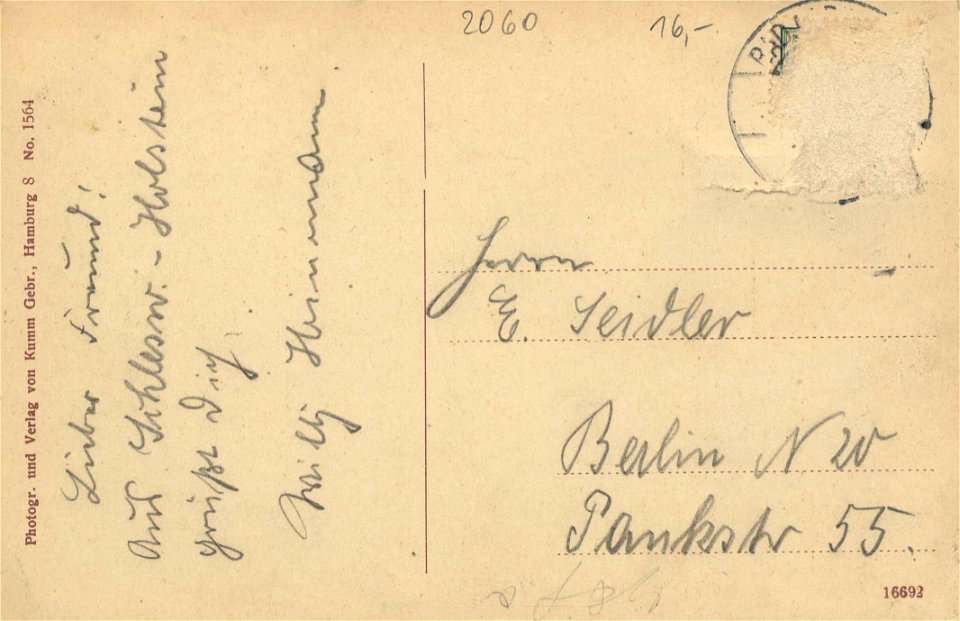 2060
16,-
Photogr. und Verlag von Kumm Gebr., Hamburg 8 No. 1564
Lieber Freund!
Aus Schlesw.-Holstein
grüßt Dich
Willy Heinemann
Herrn
E. Seidler
Berlin N 20
Pankstr 55.
16692